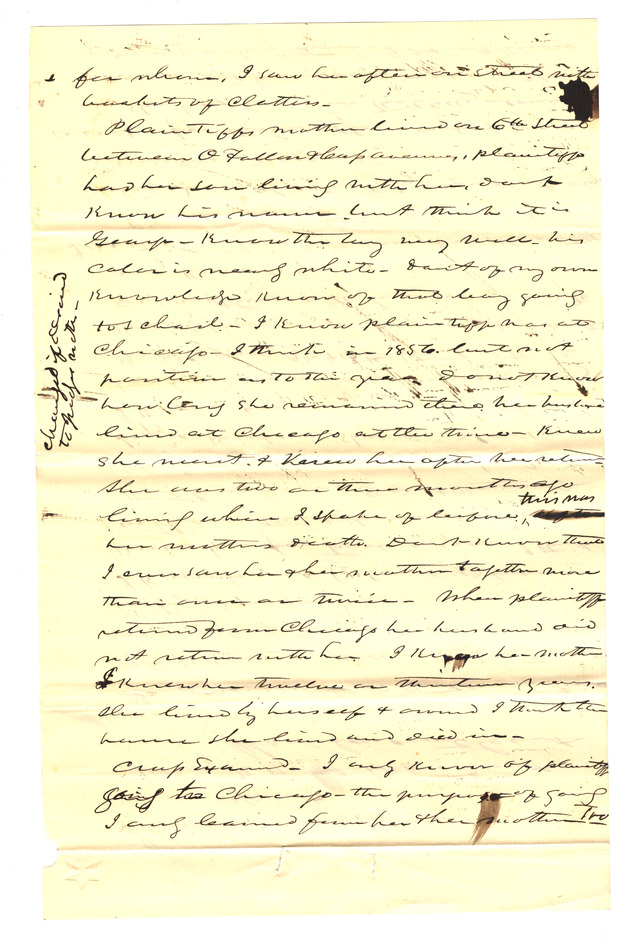 for whom, I saw her often on street with
baskets of Clothes -
Plaintiffs mother lived on 6th Street
between O Fallon & Cass avenues, plaintiff
had her son living with her, dont
Know his name but think it is
George - Know the boy very well - his
Color is nearly white - dont of my own
Knowledge Know of that boy going
to school - I Know plaintiff was at
Chicago - I think in 1856. but not
positive as to the year I do not Know
how long she remained there, her husband
lived at Chicago at the time - Knew
she went. & Knew her after her return -
She was two or three months ago
living where I spoke of before, this was
her mothers death. Dont Know that
I ever saw her & her mother together more
than once or twice - When plaintiff
returned from Chicago her husband did
not return with her. I Knew her mother
I Knew her twelve or thirteen years.
She lived by herself & owned I think the
house she lived and died in -
Cross Examined - I only Know of plaintiff
going to Chicago - the purpose of going
I only learned from her & her mother too
changed
to